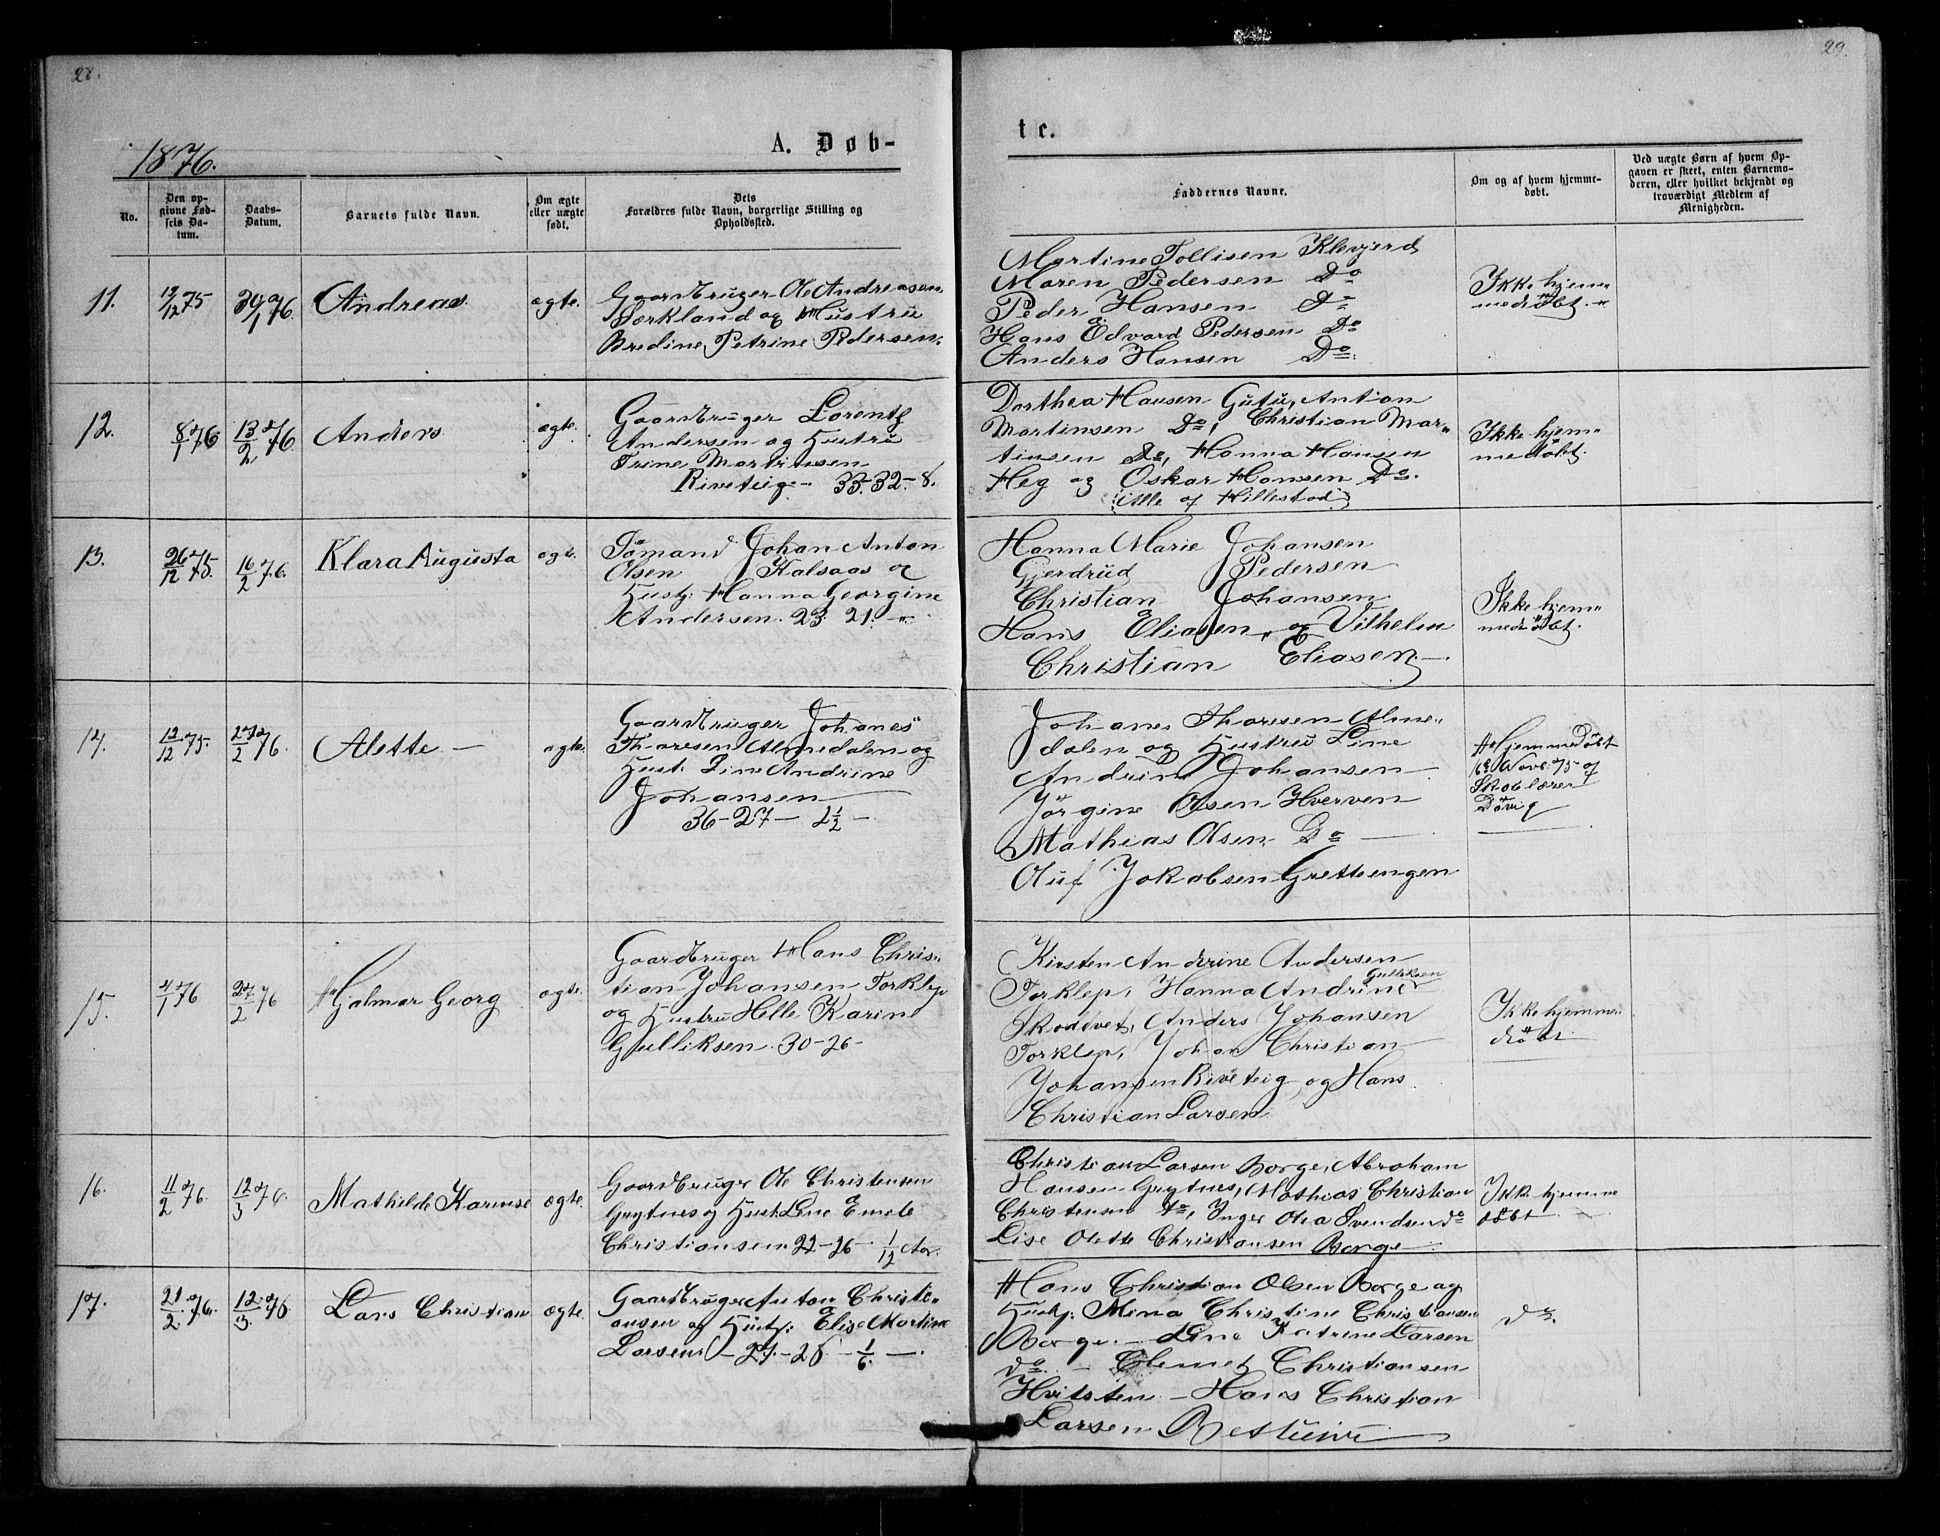 28.
29.
1876.
A. Døb-
te.
No.
Den op-
givne Fød-
sels Da-
tum.
Daabs-
Datum.
Barnets fulde Navn.
Om ægte
eller uægte
født.
Dets
Forældres fulde Navn, borgerlige Stilling og
Opholdssted.
Faddernes Navne.
Om og af hvem hjemme-
døbt.
Ved uægte Børn af hvem Op-
gaven er skeet, enten Barnemo-
deren, eller hvilket bekjendt og
troværdigt Medlem af
Menigheden.
11.
12/12 75
30/1 76.
Andreas
ægte.
Gaardbruger Ole Andreasen
Sørkland og Hustru
Bredine Petrine Pedersen.
Martine Tollisen
Maren Pedersen Do
Peder Hansen Do
Hans Edvard Pedersen Do
Anders Hansen Do.
Ikke hjem-
medøbt.
12.
8/1 76
13/2 76.
Anders
ægte.
Gaardbruger Lorentz
Andersen og Hustru
Trine Martinsen
Riveteig - 33. 32 - 8.
Dorthea Hansen Gutu, Antian
Martinsen Do, Christian Mar-
tinsen Do, Hanna Hansen
Heg og Oskar Hansen Do.
(Alle af Hillestad)
Ikke hjem-
medøbt.
13.
26/12 75.
16/2 76.
Klara Augusta
ægte.
Sømand Johan Anton
Olsen Kalsaas og
Hustr. Hanna Georgine
Andersen. 23. 21. -
Hanna Marie Johansen
Gjerdrud Pedersen
Christian Johansen
Hans Eliasen, og Vilhelm
Christian Eliasen. -
Ikke hjem-
medøbt.
14.
12/12 75.
27/2 76.
Alette -
ægte.
Gaardbruger Johanes
Thoresen Almedalen og
Hust. Line Andrine
Johansen
36 - 27 - 2½ -
Johanes Thoresen Alme-
dalen og Hustru Line
Andrine Johansen
Jørgine Olsen Hverven
Mathias Olsen Do -
Oluf Jokobsen Grettengen
Hjemmedøbt
75 af
Skolelærer
15.
4/1 76
27/2 76
Hjalmar Georg
ægte.
Gaardbruger Hans Chris-
tian Johansen Torklep
og Hustru Helle Karine
Gulliksen. 30 - 26 -
Kirsten Andrine Andersen
Torklep, Hanna Andrine Gulliksen
Anders Johansen
Torklep, Johan Christian
Johansen Riveteig og Hans
Christian Larsen
Ikke hjemme-
døbt
16.
11/2 76.
12/3 76.
Mathilde Karense
ægte.
Gaardbruger Ole Christensen
og Hust. Lene Emele
Christiansen 22 - 26 - 1/12 Aar.
Christian Larsen Borge, Abraham
Hansen Mathias Christian
Christensen do, Inger Olea Svendsen do
Lise Olette Christiansen Borge
Ikke hjemme
døbt
17.
21/2 76.
12/3. 76
Lars Christian
ægte.
Gaardbruger Anton Christi-
ansen og Hust. Elise Martine
Larsen - 27. - 28 - 1/6. -
Hans Christian Olsen Borge og
Hust. Mina Christine Christiansen
Borge. - Line Katrine Larsen
do. - Clemet Christiansen
Hvitsten - Hans Christian
Larsen
do.